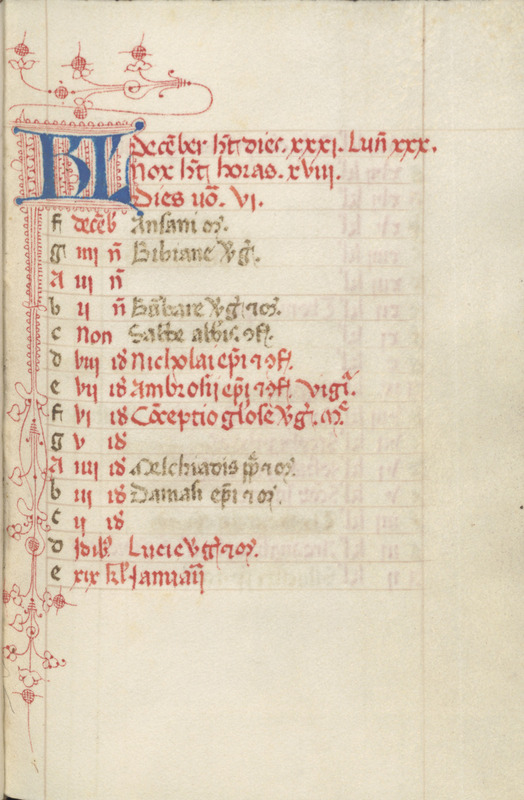 KL Decēber h̄t dies. xxxi. Lun̄ xxx.
Nox h̄t horas. xviii.
Dies uō. vi.
f decēb Ansani m̄r.
g iiii n̄ Bibiane v̄ḡ.
A iii n̄
b ii n̄ Bārbare v̄ḡ ⁊ m̄r.
c Non Sabbe abb̄is. ⁊ ꝯf.
d viii id Nicholai ep̄i ⁊ ꝯf.
e vii id Ambrosii ep̄i ⁊ ꝯf. vigī.
f vi id Cōceptio glōse v̄ḡ. m̄r̄
g v id
A iiii id Melchiadis p̄p̄ ⁊ m̄r.
b iii id Damasi ep̄i ⁊ ꝯf.
c ii id
d Idib' Lucie v̄ḡ ⁊ m̄r.
e xix kl' Januarii